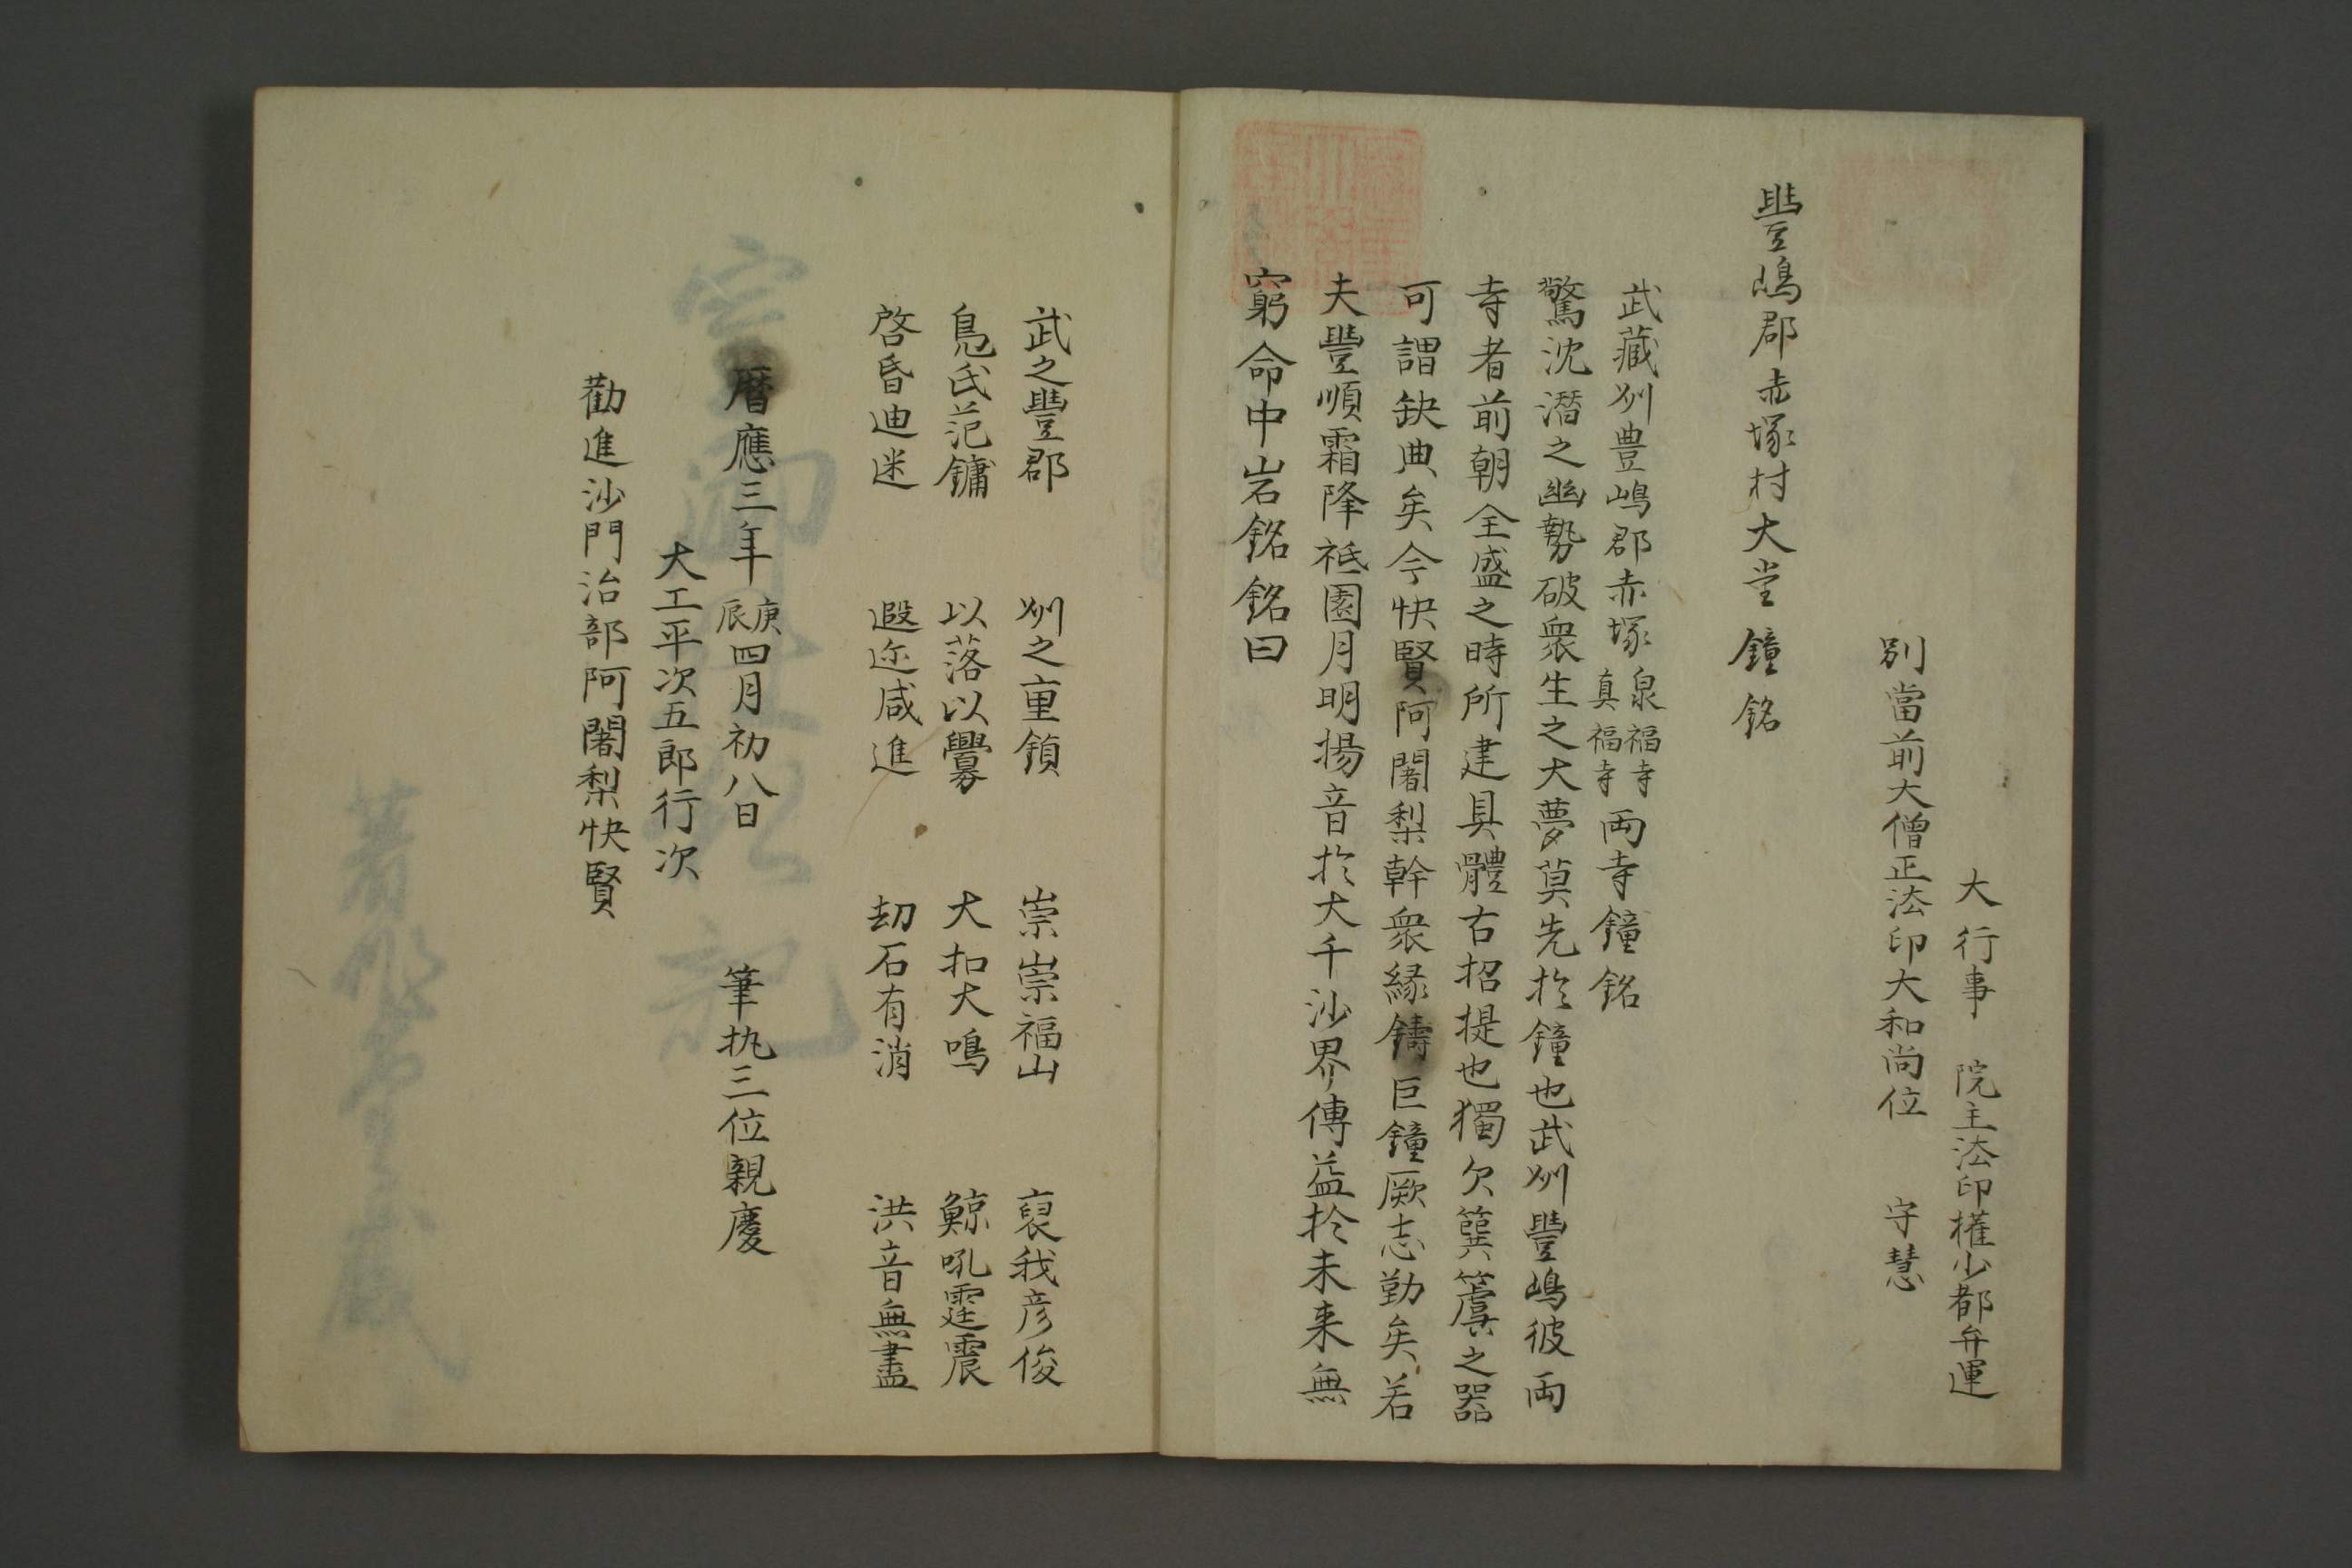 大行事　院主法印権少都弁運
別當前大僧正法印大和尚位　守慧
豐嶋郡赤塚村大堂鐘銘
武藏刕豊嶋郡赤塚泉福寺真福寺両寺鐘銘
驚沈潛之幽勢破衆生之大夢莫先於鐘也武刕豐嶋彼両
寺者前朝全盛之時所建具體右招提也獨欠簨簴之器
可謂缺典矣今快賢阿闍梨幹衆縁鋳巨鐘厥志勤矣若
夫豐順霜降祗園月明揚音於大千沙界傳益於未来無
窮命中岩銘銘曰
武之豐郡　刕之重鎮　崇崇福山　裒我彦俊
鳧氏范鏞　以落以釁　大扣大鳴　鯨吼霆震
啓昏迪迷　遐迩咸進　劫石有消　洪音無盡
暦應三年庚辰四月初八日　筆执三位親慶
大工平次五郎行次
勸進沙門治部阿闍梨快賢